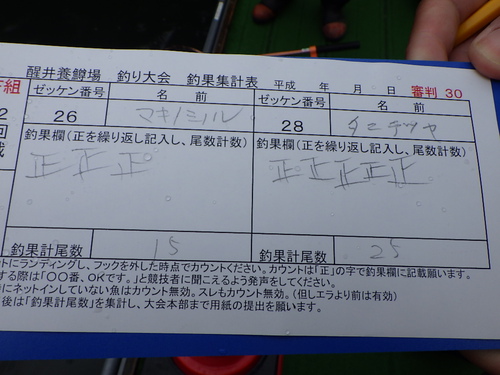 醒井養鱒場 釣り大会 釣果集計表 平成 年 月 日 審判 30
組
ゼッケン番号 名 前 ゼッケン番号 名 前
26 マキノミノル 28
釣果欄(正を繰り返し記入し、尾数計数) 釣果欄(正を繰り返し記入し、尾数計数)
正正正 正正正正正
釣果計尾数 15 釣果計尾数 25
トにランディングし、フックを外した時点でカウントください。カウントは「正」の字で釣果欄に記載願います。
する際は「〇〇番、OKです。」と競技者に聞こえるよう発声をしてください。
にネットインしていない魚はカウント無効。スレもカウント無効。(但しエラより前は有効)
後は「釣果計尾数」を集計し、大会本部まで用紙の提出を願います。